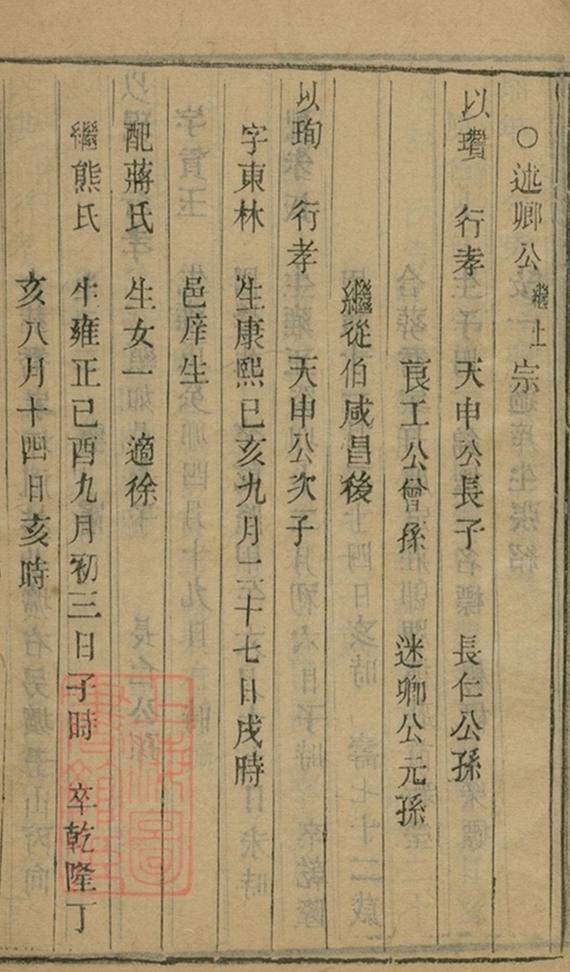 ○述卿公繼上宗
以瓚 行孝 天申公長子 長仁公孫
莨工公曾孫 述卿公元孫
繼從伯咸昌後
以珣 行孝 天申公次子
字東林 生康熙己亥九月二十七日戌時
邑庠生
配蔣氏 生女一 適徐
繼熊氏 生雍正己酉九月初三日子時 卒乾隆丁
亥八月十四日亥時